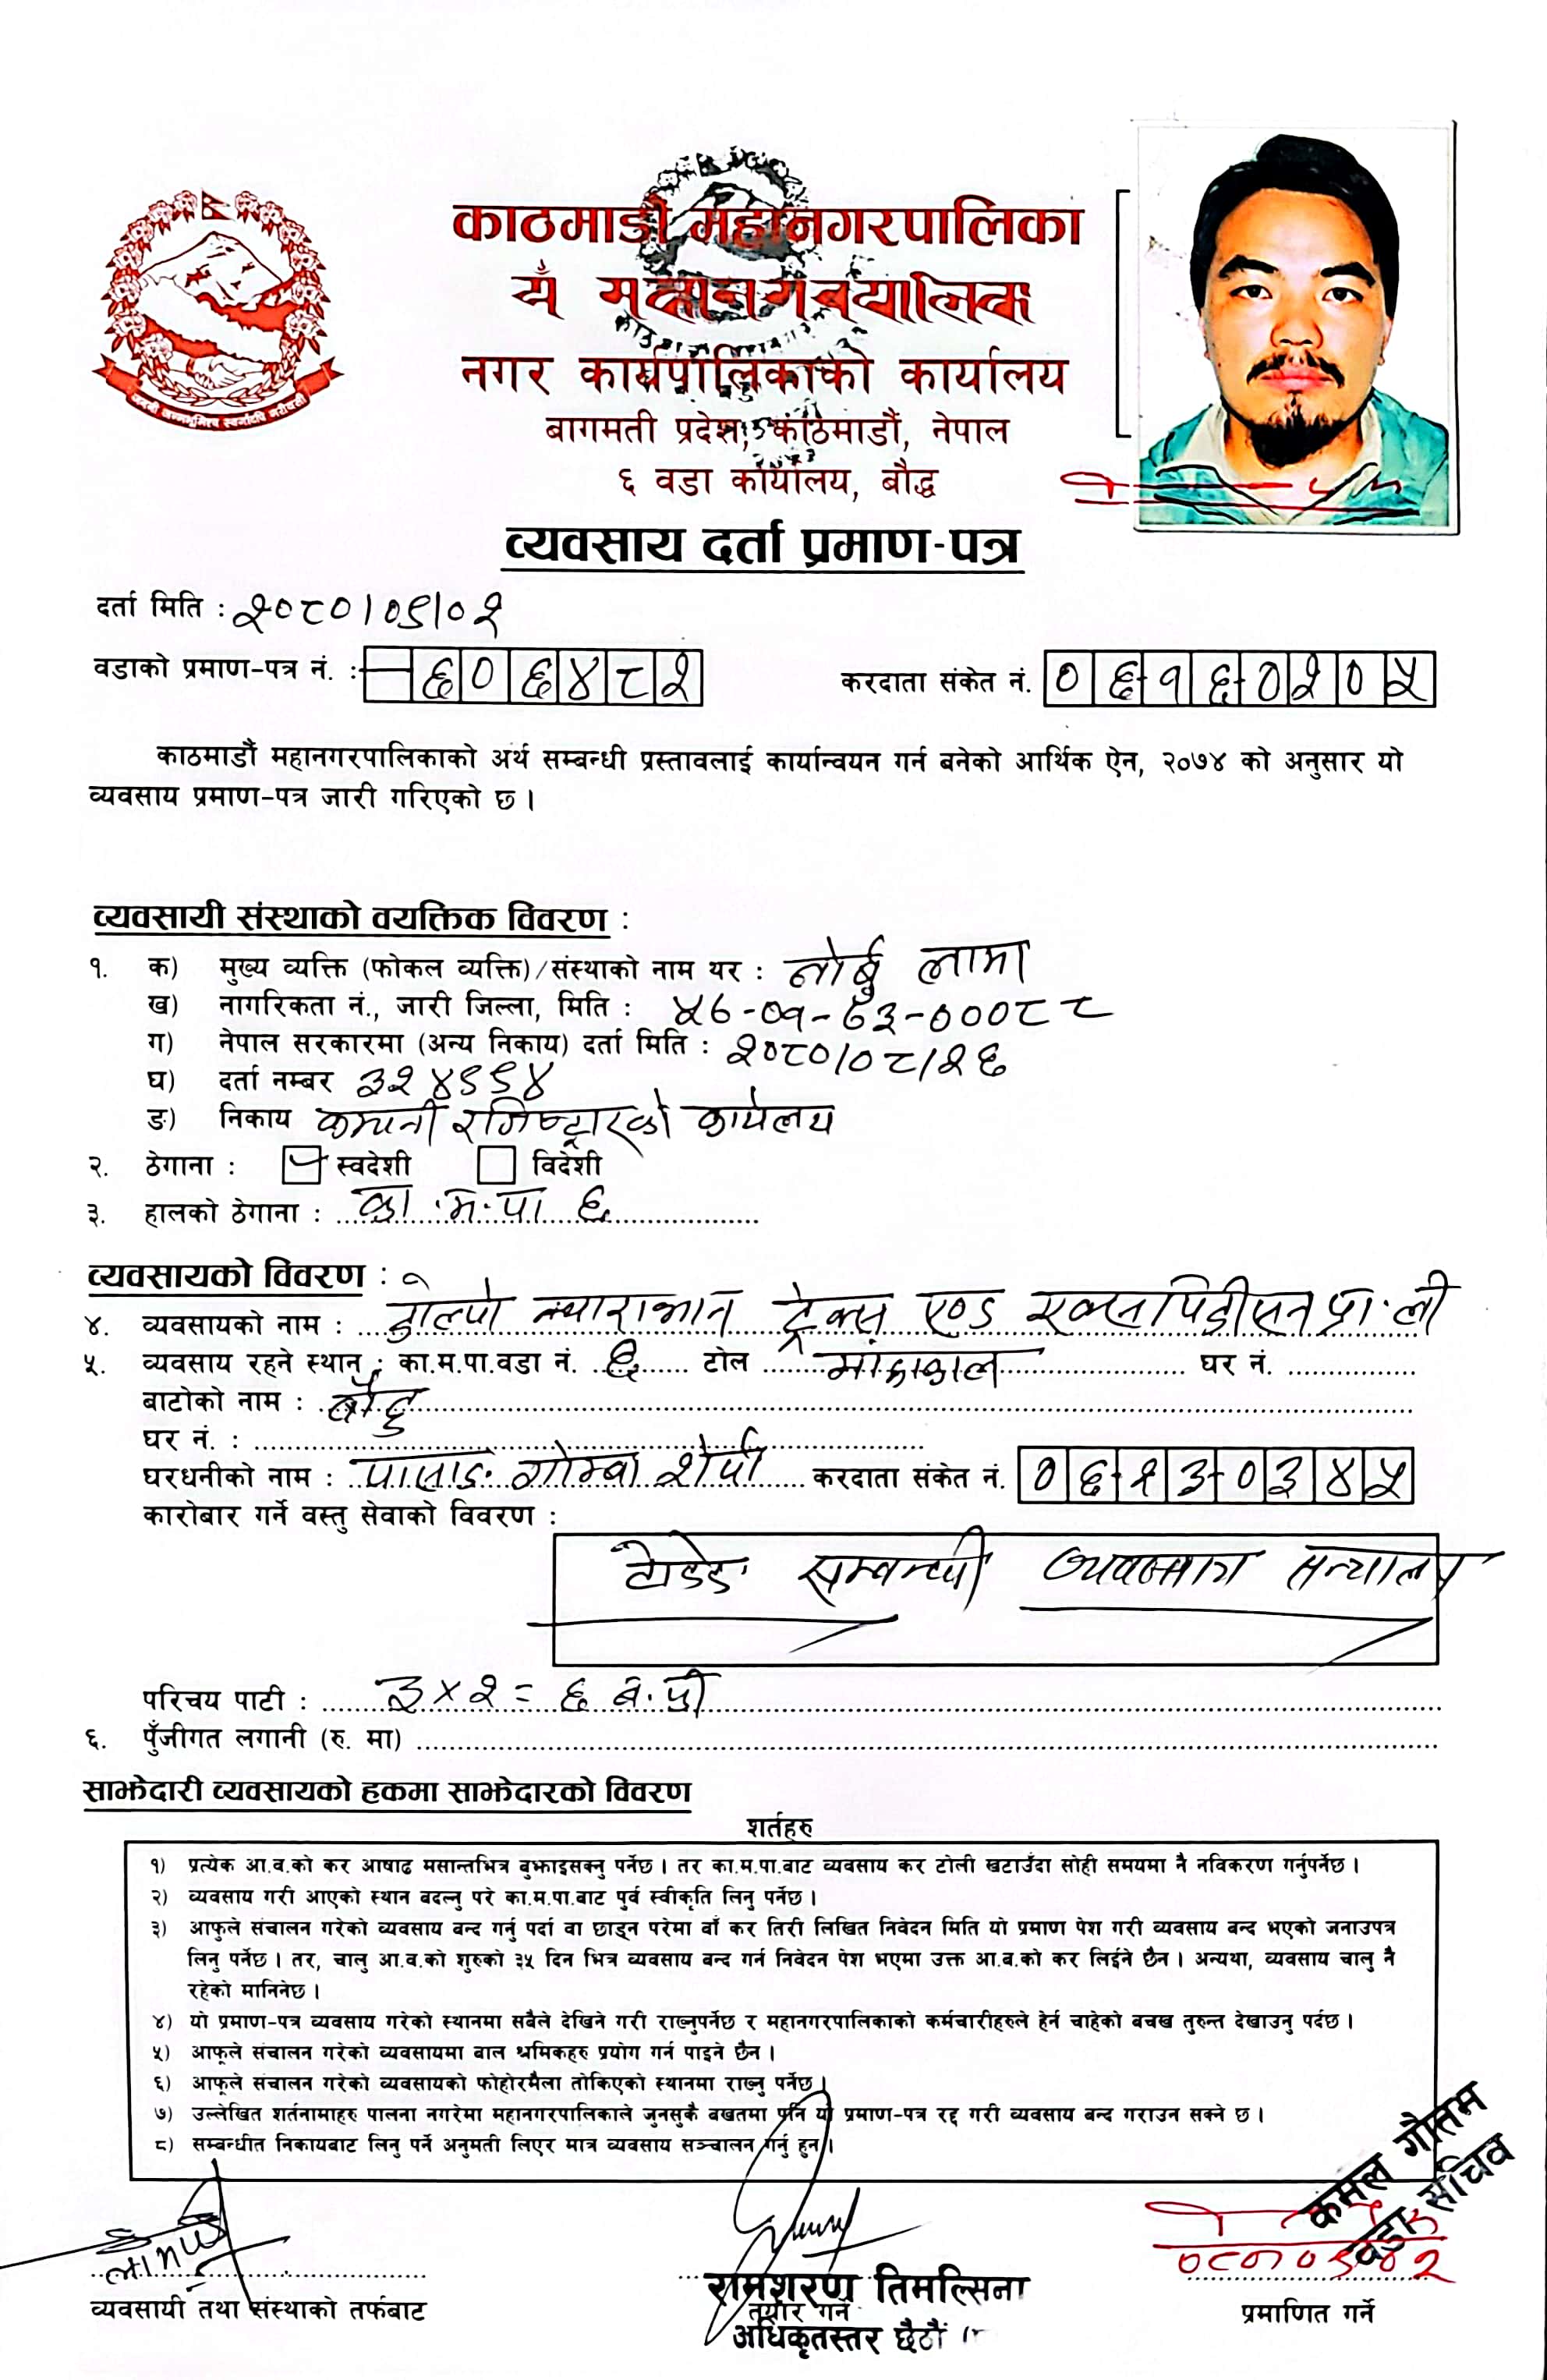 काठमाडौं महानगरपालिका
यँ महानगरपालिका
नगर कार्यपालिकाको कार्यालय
बागमती प्रदेश, काठमाडौं, नेपाल
६ वडा कार्यालय, बौद्ध
व्यवसाय दर्ता प्रमाण-पत्र
दर्ता मिति : २०८०/०९/०२
वडाको प्रमाण-पत्र नं. : ६०६४८२ करदाता संकेत नं. ०६१६०२०५
काठमाडौं महानगरपालिकाको अर्थ सम्बन्धी प्रस्तावलाई कार्यान्वयन गर्न बनेको आर्थिक ऐन, २०७४ को अनुसार यो
व्यवसाय प्रमाण-पत्र जारी गरिएको छ ।
व्यवसायी संस्थाको वयक्तिक विवरण :
१. क) मुख्य व्यक्ति (फोकल व्यक्ति)/संस्थाको नाम थर : नोर्बु लामा
ख) नागरिकता नं., जारी जिल्ला, मिति :
ग) नेपाल सरकारमा (अन्य निकाय) दर्ता मिति : २०८०/०८/२६
घ) दर्ता नम्बर ३२४९९४
ङ) निकाय कम्पनी रजिष्ट्रारको कार्यलय
२. ठेगाना : स्वदेशी विदेशी
३. हालको ठेगाना : का.म.पा ६
व्यवसायको विवरण :
४. व्यवसायको नाम : डोल्पो ट्रेक्स एण्ड एक्सपिडीसन प्रा.ली
५. व्यवसाय रहने स्थान : का.म.पा.वडा नं. ६ टोल घर नं.
बाटोको नाम : बौद्ध
घर नं. :
घरधनीको नाम : पासाङ गोम्बा शेर्पा करदाता संकेत नं. ०६२३०३४५
कारोबार गर्ने वस्तु सेवाको विवरण :
सम्बन्धी व्यवसाय सन्चालन
परिचय पाटी : ३ × २ = ६ ब.फी
६. पुँजीगत लगानी (रु. मा)
साझेदारी व्यवसायको हकमा साझेदारको विवरण
शर्तहरु
१) प्रत्येक आ.व.को कर आषाढ मसान्तभित्र बुझाइसक्नु पर्नेछ । तर का.म.पा.बाट व्यवसाय कर टोली खटाउँदा सोही समयमा नै नविकरण गर्नुपर्नेछ ।
२) व्यवसाय गरी आएको स्थान बदल्नु परे का.म.पा.बाट पुर्व स्वीकृति लिनु पर्नेछ ।
३) आफुले संचालन गरेको व्यवसाय बन्द गर्नु पर्दा वा छाड्न परेमा बाँ कर तिरी लिखित निवेदन मिति यो प्रमाण पेश गरी व्यवसाय बन्द भएको जनाउपत्र
लिनु पर्नेछ । तर, चालु आ.व.को शुरुको ३५ दिन भित्र व्यवसाय बन्द गर्न निवेदन पेश भएमा उक्त आ.व.को कर लिईने छैन । अन्यथा, व्यवसाय चालु नै
रहेको मानिनेछ ।
४) यो प्रमाण-पत्र व्यवसाय गरेको स्थानमा सबैले देखिने गरी राख्नुपर्नेछ र महानगरपालिकाको कर्मचारीहरुले हेर्न चाहेको बचख तुरुन्त देखाउनु पर्दछ ।
५) आफूले संचालन गरेको व्यवसायमा बाल श्रमिकहरु प्रयोग गर्न पाइने छैन ।
६) आफूले संचालन गरेको व्यवसायको फोहोरमैला तोकिएको स्थानमा राख्नु पर्नेछ ।
७) उल्लेखित शर्तनामाहरु पालना नगरेमा महानगरपालिकाले जुनसुकै बखतमा पनि यो प्रमाण-पत्र रद्द गरी व्यवसाय बन्द गराउन सक्ने छ ।
८) सम्बन्धीत निकायबाट लिनु पर्ने अनुमती लिएर मात्र व्यवसाय सञ्चालन गर्नु हुन ।
कमल गौतम
वडा सचिव
रामशरण तिमल्सिना
व्यवसायी तथा संस्थाको तर्फबाट तयार गर्ने प्रमाणित गर्ने
अधिकृतस्तर छैठौं